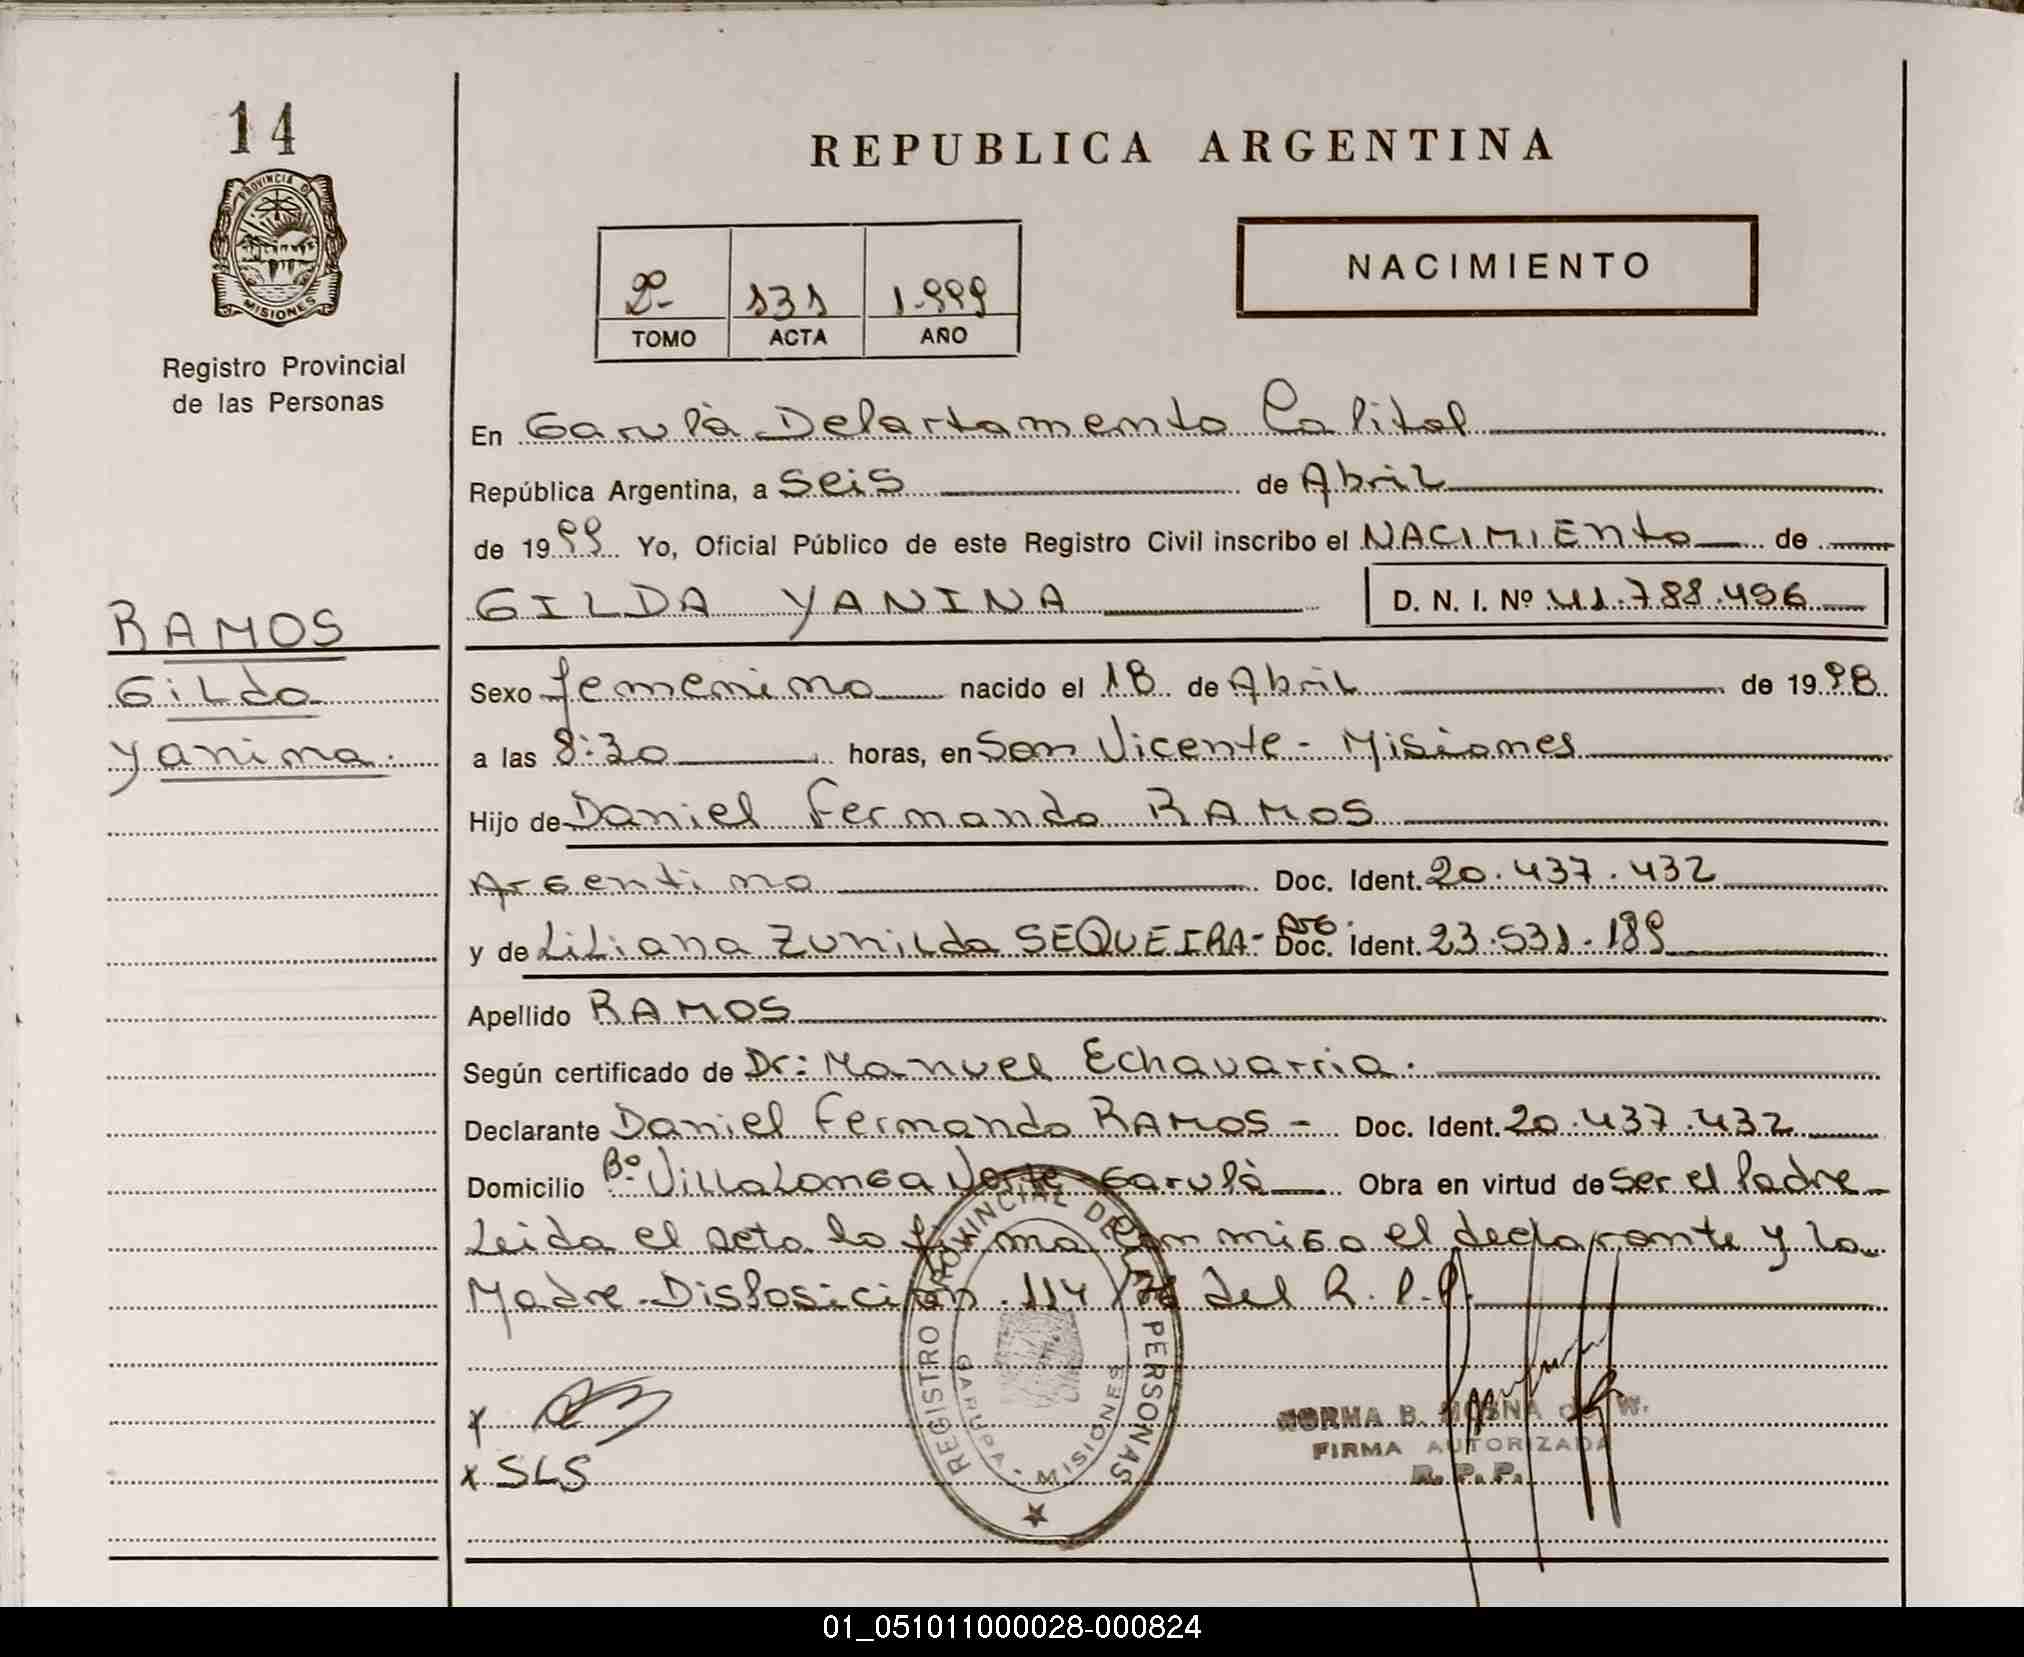 14
REPUBLICA ARGENTINA
PROVINCIA DE
MISIONES
Registro Provincial
de las Personas
2º- 131 1.999
TOMO ACTA AÑO
NACIMIENTO
En Garupà Departamento Capital
República Argentina, a Seis de Abril
de 1999 Yo, Oficial Público de este Registro Civil inscribo el NACIMIENto de
GILDA YANINA D. N. I. Nº 41.788.496
RAMOS
Gilda
Yanina.
Sexo femenino nacido el 18 de Abril de 1998
a las 8:30 horas, en San Vicente - Misiones
Hijo de Daniel Fernando RAMOS
Argentino Doc. Ident. 20.437.432
y de Liliana Zunilda SEQUEIRA- Arg. Doc. Ident. 23.531.189
Apellido RAMOS
Según certificado de Dr: Manuel Echavarria.
Declarante Daniel Fernando RAMOS - Doc. Ident. 20.437.432
Domicilio Bº Villalonga Norte Garupà Obra en virtud de ser el Padre
Leida el acta la firma con migo el declarante y la
Madre. Disposición 114/ del R.P.P.
REGISTRO PROVINCIAL DE LAS PERSONAS
GARUPA - MISIONES
x
x SLS
NORMA B. W.
FIRMA AUTORIZADA
R. P. P.
01_051011000028-000824